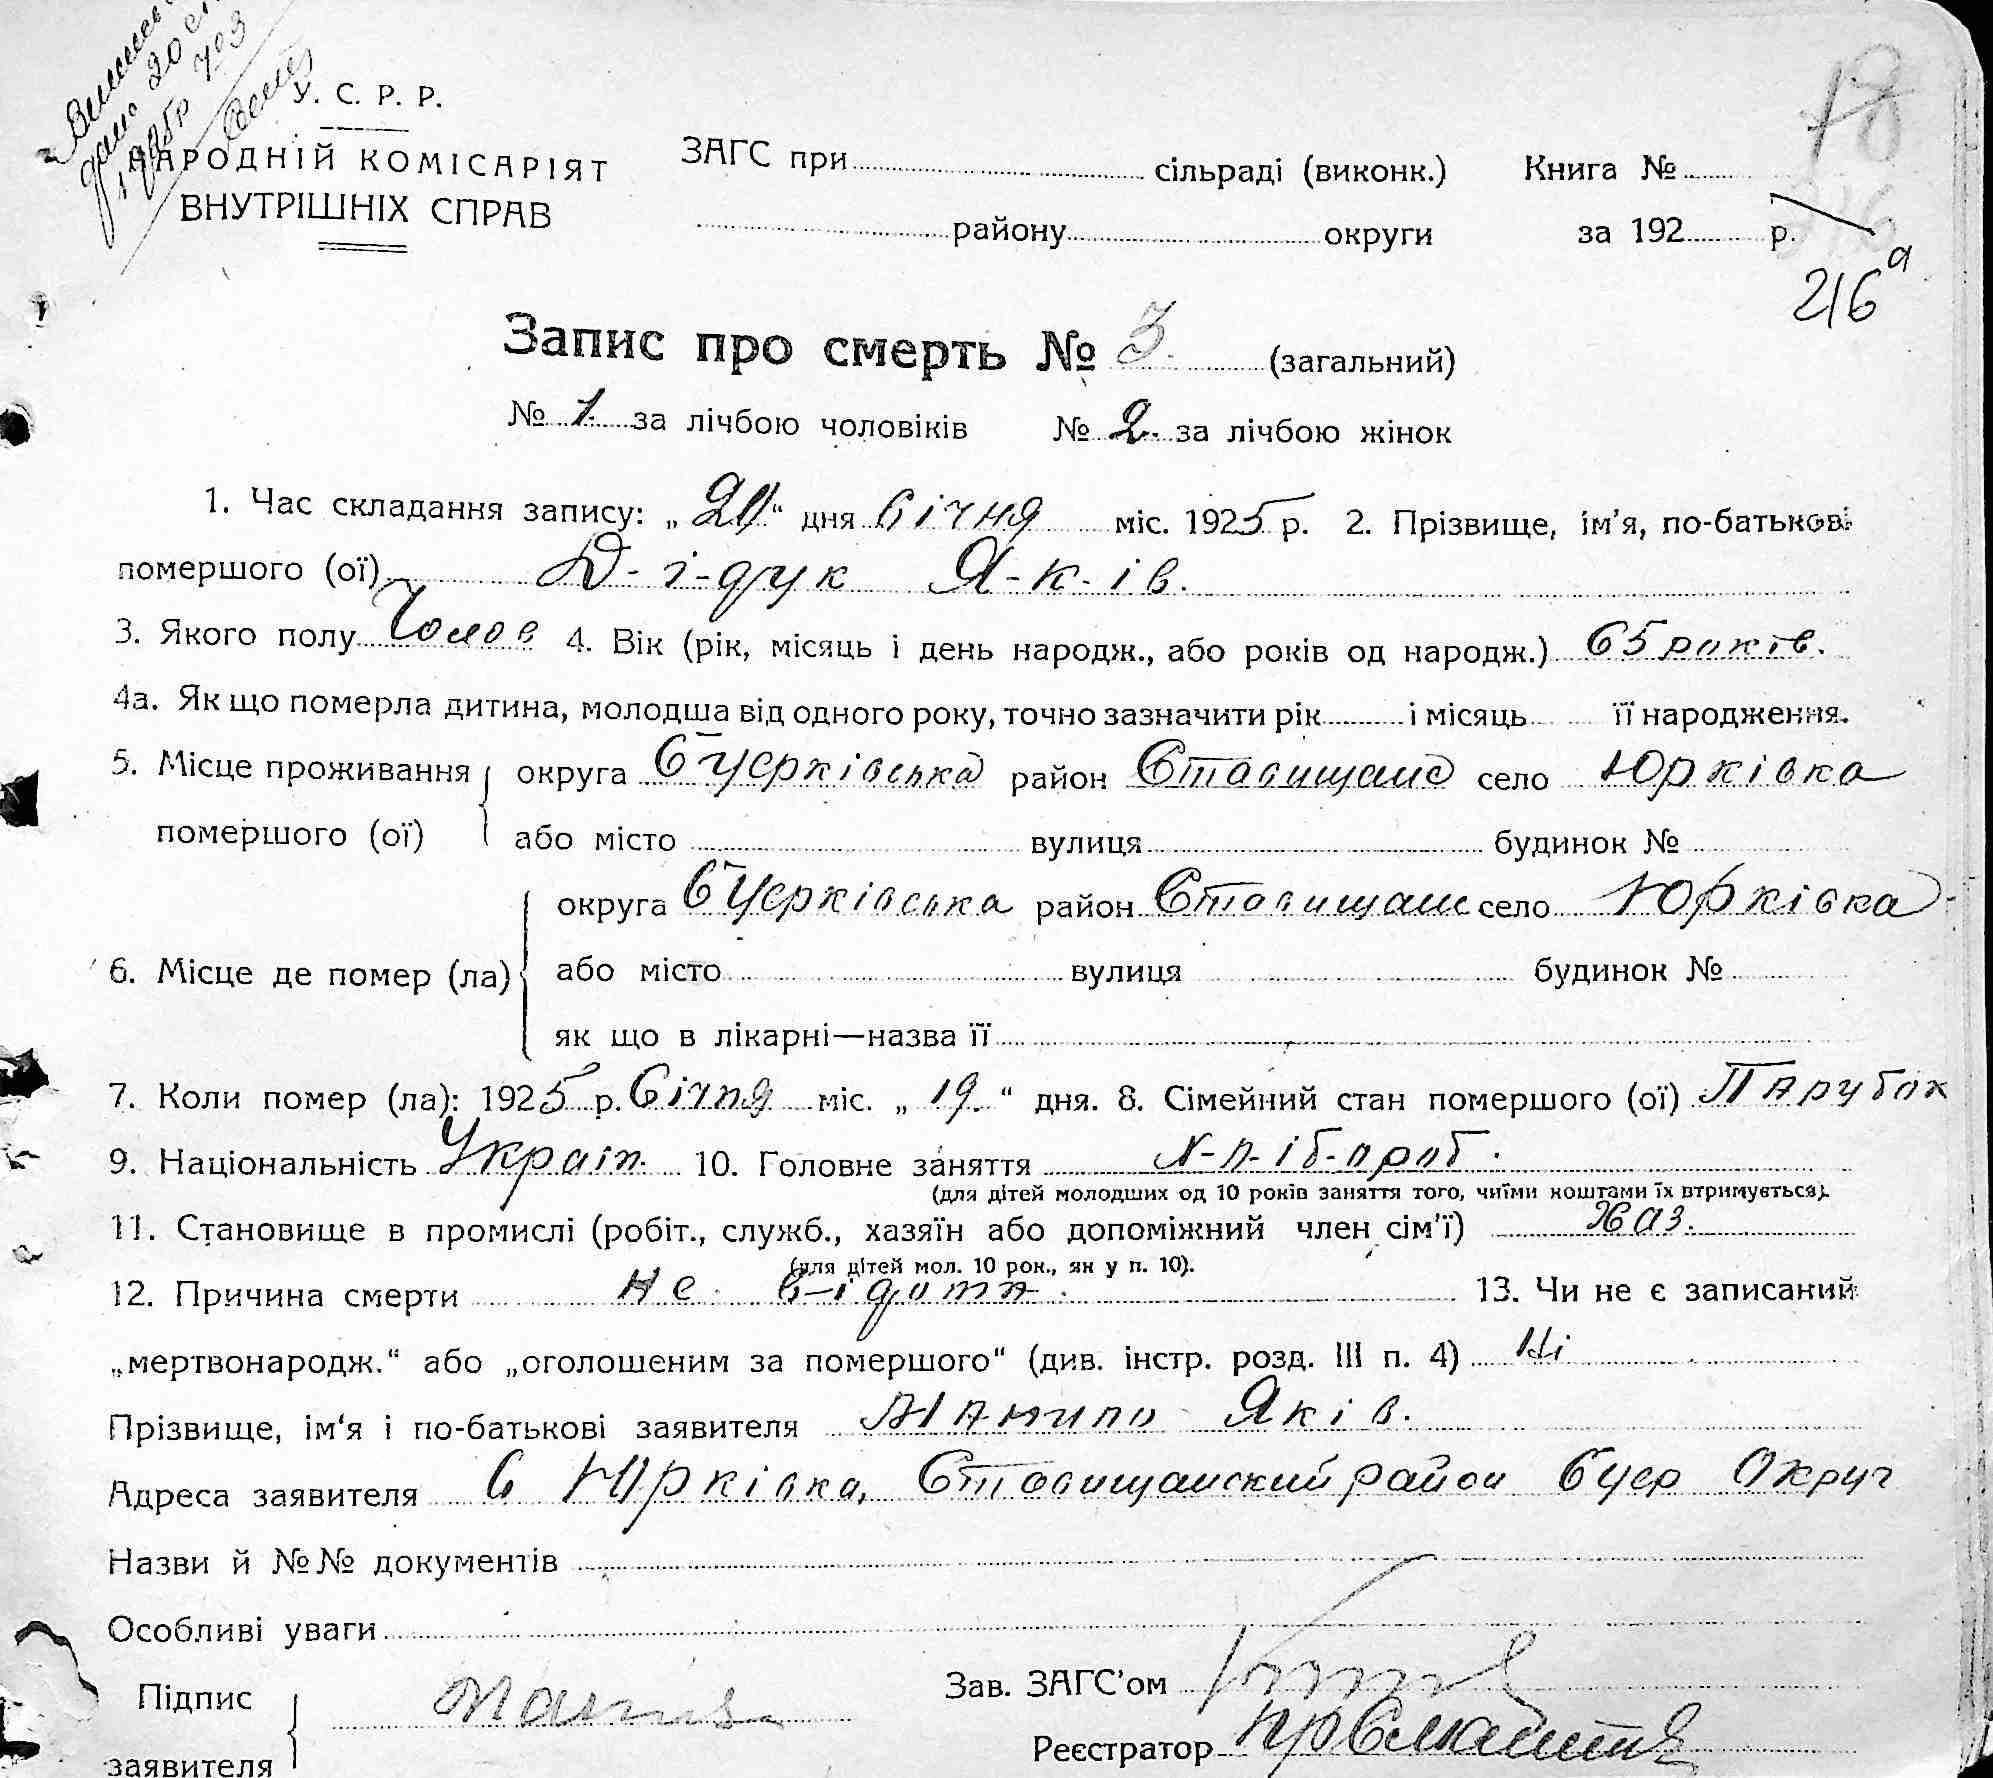 У. С. Р. Р.
НАРОДНІЙ КОМІСАРІЯТ
ВНУТРІШНІХ СПРАВ
ЗАГС при сільраді (виконк.) Книга №
району округи за 192 р.
18
216а
Запис про смерть № 3 (загальний)
№ 1 за лічбою чоловіків № 2 за лічбою жінок
1. Час складання запису: „20“ дня Січня міс. 1925 р. 2. Прізвище, ім’я, по-батькові
помершого (ої) Д-і-дук Я-к-ів.
3. Якого полу Чолов 4. Вік (рік, місяць і день народж., або років од народж.) 65 років.
4а. Як що померла дитина, молодша від одного року, точно зазначити рік і місяць її народження.
5. Місце проживання помершого (ої) округа БЦерківська район Ставищанс село Юрківка
або місто вулиця будинок №
6. Місце де помер (ла) округа БЦерківська район Ставищанс село Юрківка
або місто вулиця будинок №
як що в лікарні—назва її
7. Коли помер (ла): 1925 р. Січня міс. „19.“ дня. 8. Сімейний стан помершого (ої) Парубок
9. Національність Україн. 10. Головне заняття Х-л-іб-ороб.
(для дітей молодших од 10 років заняття того, чиїми коштами їх втримується).
11. Становище в промислі (робіт., служб., хазяїн або допоміжний член сім’ї) Хаз.
(для дітей мол. 10 рок., як у п. 10).
12. Причина смерти не в-ідома. 13. Чи не є записаний
„мертвонародж.“ або „оголошеним за помершого“ (див. інстр. розд. III п. 4) Ні
Прізвище, ім‘я і по-батькові заявителя Яків.
Адреса заявителя С Юрківка, Ставищанский район Бцер Округ
Назви й №№ документів
Особливі уваги
Підпис заявителя
Зав. ЗАГС’ом
Реєстратор